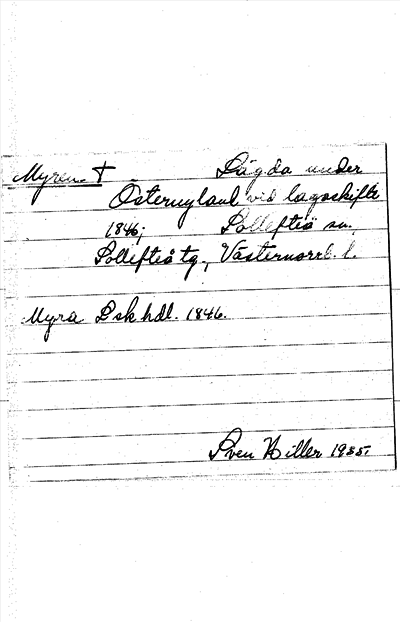 Myren † Lägda under
Östernyland vid lagaskifte
1846; Sollefteå sn,
Sollefteå tg., Västernorrl. l.
Myra L sk hdl. 1846.
Sven Hiller 1935.